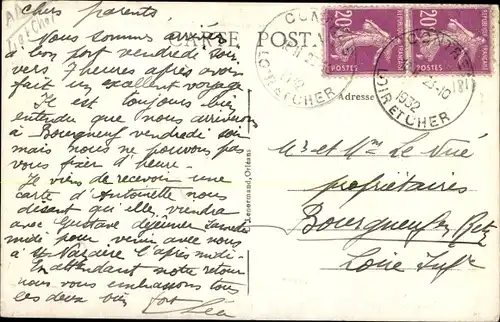 Chers parents
Nous sommes arrivés
à bon port vendredi soir
vers 7 heures après avoir
fait un excellent voyage
Il est toujours bien
entendu que nous arriverons
à Bourgneuf vendredi soir
mais nous ne pouvons pas
vous fixer d'heure.
Je viens de recevoir une
carte d'Antoinette nous
disant qu'elle viendra
avec Gustave déjeuner samedi
midi pour venir avec nous
à St Nazaire l'après-midi.
En attendant notre retour
nous vous embrassons tous
les deux bien fort
Léa
CARTE POSTALE
Adresse
Lenormand, Orléans
20
POSTES
20
POSTES
REPUBLIQUE FRANÇAISE
LOIR ET CHER
23-10
1932
LOIR ET CHER
Mr et Mme Le Vué
propriétaires
Bourgneuf en Retz
Loire Infre